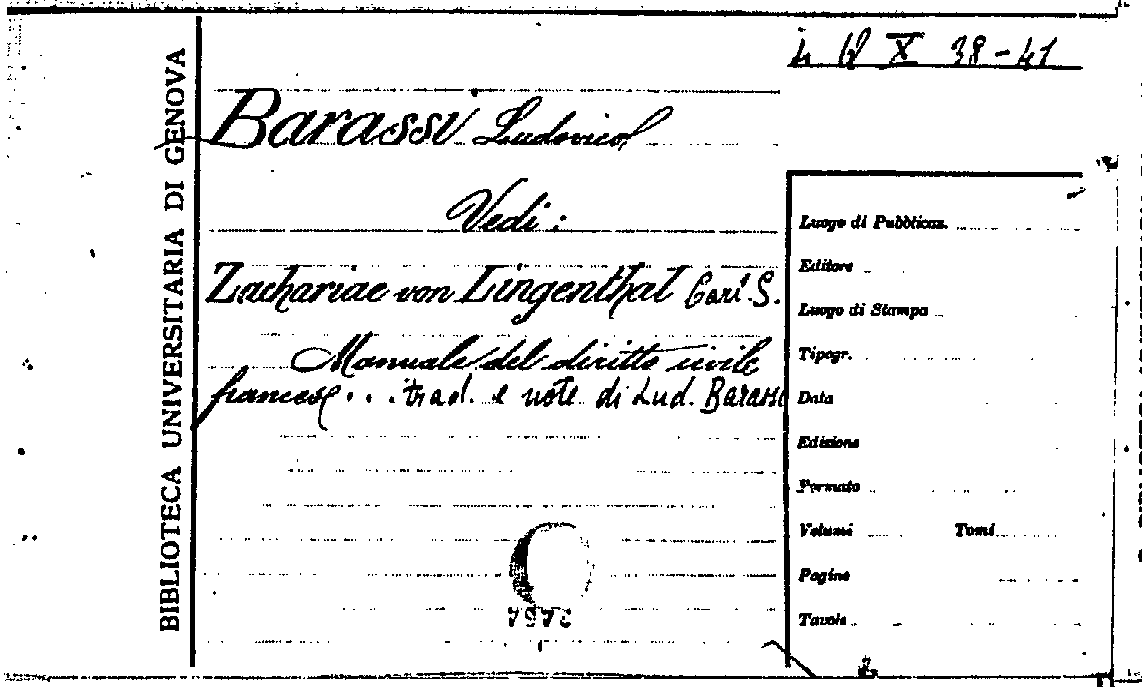 4 Q X 38-41
BIBLIOTECA UNIVERSITARIA DI GENOVA
Barassi Ludovico
Vedi:
Zachariae von Lingenthal Carl S.
Manuale del diritto civile
francese... trad. e note di Lud. Barassi
Luogo di Pubblicaz.
Editore
Luogo di Stampa
Tipogr.
Data
Edizione
Formato
Volumi Tomi
Pagine
Tavole